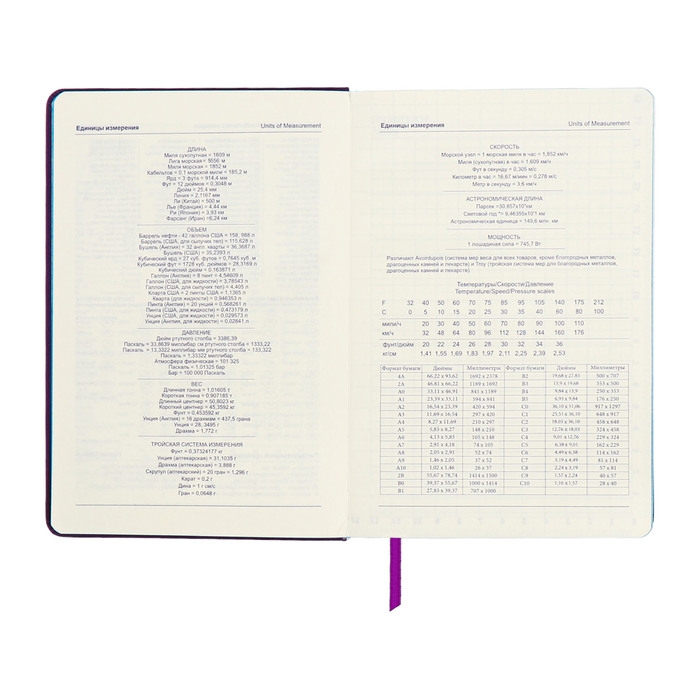 Единицы измерения
Units of Measurement
ДЛИНА
Миля сухопутная = 1609 м
Лига морская = 5556 м
Миля морская = 1852 м
Кабельтов = 0,1 морской мили = 185,2 м
Ярд = 3 фута = 914,4 мм
Фут = 12 дюймов = 0,3048 м
Дюйм = 25,4 мм
Линия = 2,1167 мм
Ли (Китай) = 500 м
Лье (Франция) = 4,44 км
Ри (Япония) = 3,93 км
Фарсанг (Иран) =6,24 км
ОБЪЕМ
Баррель нефти - 42 галлона США = 158, 988 л
Баррель (США, для сыпучих тел) = 115,628 л
Бушель (Англия) = 32 англ. кварты = 36,3687 л
Бушель (США) = 35,2393 л
Кубический ярд = 27 куб. футов = 0,7645 куб. м
Кубический фут = 1728 куб. дюймов = 28,3169 л
Кубический дюйм = 0,163871 л
Галлон (Англия) = 8 пинт = 4,54609 л
Галлон (США, для жидкости) = 3,78543 л
Галлон (США, для сыпучих тел) = 4,405 л
Кварта (Англия) = 2 пинты = 1,1365 л
Кварта (для жидкости) = 0,946353 л
Пинта (Англия) = 20 унций = 0,568261 л
Пинта (США, для жидкости) = 0,473179 л
Унция (США, для жидкости) = 0,029573 л
Унция (Англия, для жидкости) = 0,02841 л
ДАВЛЕНИЕ
Дюйм ртутного столба = 3386,39
Паскаль = 33,8639 миллибар см ртутного столба = 1333,22
Паскаль = 13,3322 миллибар мм ртутного столба = 133,322
Паскаль = 1,33322 миллибар
Атмосфера физическая = 101 325
Паскаль = 1,01325 бар
Бар = 100 000 Паскаль
ВЕС
Длинная тонна = 1,01605 г
Короткая тонна = 0,907185 г
Длинный центнер = 50,8023 кг
Короткий центнер = 45,3592 кг
Фунт = 0,453592 кг
Унция (Англия) = 16 драхмам = 437,5 грана
Унция = 28, 3495 г
Драхма = 1,772 г
ТРОЙСКАЯ СИСТЕМА ИЗМЕРЕНИЯ
Фунт = 0,37324177 кг
Унция (аптекарская) = 31,1035 г
Драхма (аптекарская) = 3,888 г
Скрупул (аптекарский) = 20 гран = 1,296 г
Карат = 0,2 г
Дина = 1 г см/с
Гран = 0,0648 г
Единицы измерения
Units of Measurement
СКОРОСТЬ
Морской узел = 1 морская миля в час = 1,852 км/ч
Миля (сухопутная) в час = 1,609 км/ч
Фут в секунду = 0,305 м/с
Километр в час = 16,67 м/мин = 0,278 м/с
Метр в секунду = 3,6 км/ч
АСТРОНОМИЧЕСКАЯ ДЛИНА
Парсек =30,857x10¹²км
Астрономическая единица = 149,6 млн. км
МОЩНОСТЬ
1 лошадиная сила = 745,7 Вт
Различают Avoirdupois (система мер веса для всех товаров, кроме благородных металлов,
драгоценных камней и лекарств) и Troy (тройская система мер для благородных металлов,
драгоценных камней и лекарств).
Температуры/Скорости/Давление
Temperature/Speed/Pressure scales
F 32 40 50 60 70 75 85 95 105 140 175 212
C 0 5 10 15 20 25 30 35 40 60 80 100
мили/ч 20 30 40 50 60 70 80 90 100 110
км/ч 32 48 64 80 96 112 128 144 160 176
фунт/дюйм 20 22 24 26 28 30 32 34 36
кг/см 1,41 1,55 1,69 1,83 1,97 2,11 2,25 2,39 2,53
Формат бумаги Дюймы Миллиметры Формат бумаги Дюймы Миллиметры
4A 66,22 x 93,62 1682 x 2378 B2 19,68 x 27,83 500 x 707
2A 46,81 x 66,22 1189 x 1682 B3 13,9 x 19,68 353 x 500
A0 33,11 x 46,81 841 x 1189 B4 9,84 x 13,9 250 x 353
A1 23,39 x 33,11 594 x 841 B5 6,93 x 9,84 176 x 250
A2 16,54 x 23,39 420 x 594 C0 36,10 x 51,06 917 x 1297
A3 11,69 x 16,54 297 x 420 C1 25,51 x 36,10 648 x 917
A4 8,27 x 11,69 210 x 297 C2 18,03 x 36,10 458 x 648
A5 5,83 x 8,27 148 x 210 C3 12,76 x 18,03 324 x 458
A6 4,13 x 5,83 105 x 148 C4 9,01 x 12,76 229 x 324
A7 2,91 x 4,18 74 x 105 C5 6,38 x 9,01 162 x 229
A8 2,05 x 2,91 52 x 74 C6 4,49 x 6,38 114 x 162
A9 1,46 x 2,05 37 x 52 C7 3,19 x 4,49 81 x 114
A10 1,02 x 1,46 26 x 37 C8 2,24 x 3,19 57 x 81
2B 55,67 x 78,74 1414 x 2000 C9 1,57 x 2,24 40 x 57
B0 39,37 x 55,67 1000 x 1414 C10 1,10 x 1,57 28 x 40
B1 27,83 x 39,37 707 x 1000